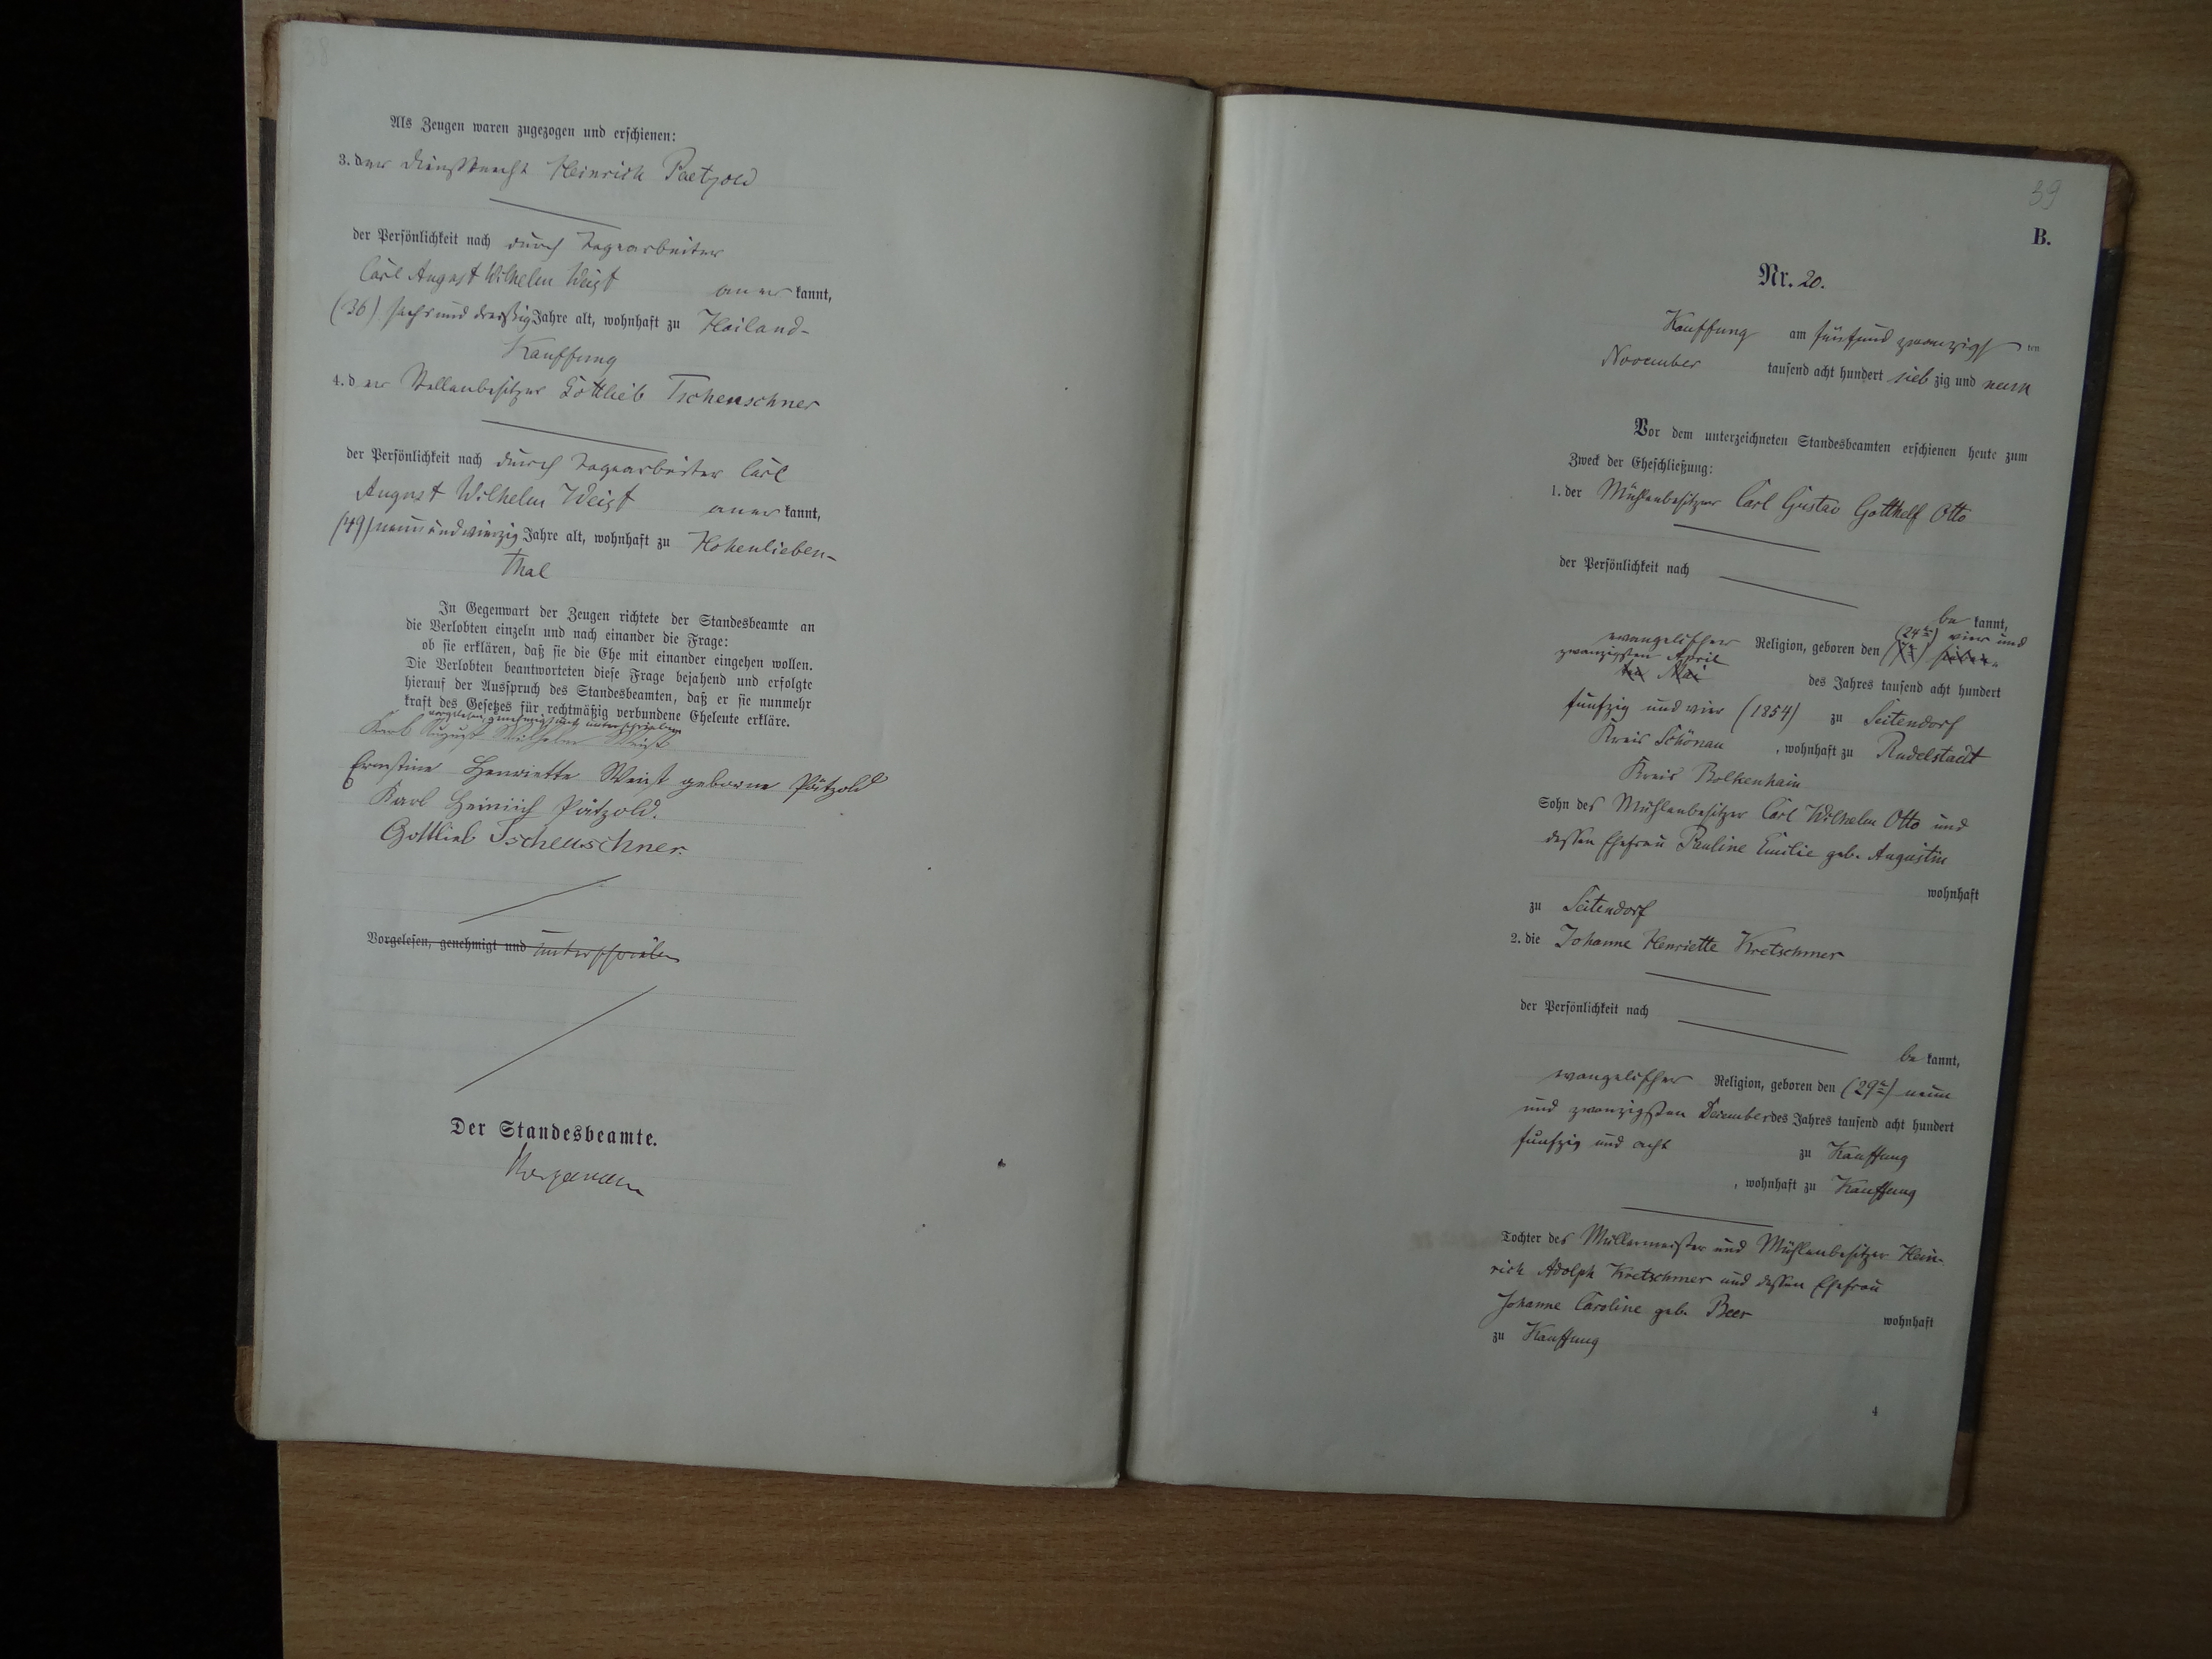 38
Als Zeugen waren zugezogen und erschienen:
3. der Dienstknecht Heinrich Paetzold
der Persönlichkeit nach durch Tagearbeiter
Carl August Wilhelm Weist anerkannt,
(36) sechsunddreißig Jahre alt, wohnhaft zu Heiland-
Kauffung
4. der Stellenbesitzer Gottlieb Tscheuschner
der Persönlichkeit nach durch Tagearbeiter Carl
August Wilhelm Weist anerkannt,
(49) neunundvierzig Jahre alt, wohnhaft zu Hohenlieben-
thal
In Gegenwart der Zeugen richtete der Standesbeamte an
die Verlobten einzeln und nach einander die Frage:
ob sie erklären, daß sie die Ehe mit einander eingehen wollen.
Die Verlobten beantworteten diese Frage bejahend und erfolgte
hierauf der Ausspruch des Standesbeamten, daß er sie nunmehr
kraft des Gesetzes für rechtmäßig verbundene Eheleute erkläre.
vorgelesen, genehmigt und unterschrieben
Karl August Wilhelm Weist
Ernstine Henriette Weist geborne Pätzold
Karl Heinrich Pätzold.
Gottlieb Tscheuschner.
Vorgelesen, genehmigt und unterschrieben
Der Standesbeamte.
39
B.
Nr. 20.
Kauffung am fünfundzwanzigsten
November tausend acht hundert siebzig und neun
Vor dem unterzeichneten Standesbeamten erschienen heute zum
Zweck der Eheschließung:
1. der Mühlenbesitzer Carl Gustav Gotthelf Otto
der Persönlichkeit nach
bekannt,
evangelischer Religion, geboren den (24ten) vier und
zwanzigsten April
ten Mai des Jahres tausend acht hundert
fünfzig und vier (1854) zu Seitendorf
Kreis Schönau, wohnhaft zu Rudelstadt
Kreis Bolkenhain
Sohn des Mühlenbesitzer Carl Wilhelm Otto und
dessen Ehefrau Pauline Emilie geb. Augustin
wohnhaft
zu Seitendorf
2. die Johanne Henriette Kretschmer
der Persönlichkeit nach
bekannt,
evangelischer Religion, geboren den (29te) neun
und zwanzigsten December des Jahres tausend acht hundert
fünfzig und acht zu Kauffung
, wohnhaft zu Kauffung
Tochter des Müllermeister und Mühlenbesitzer Hein-
rich Adolph Kretschmer und dessen Ehefrau
Johanne Caroline geb. Beer wohnhaft
zu Kauffung
4